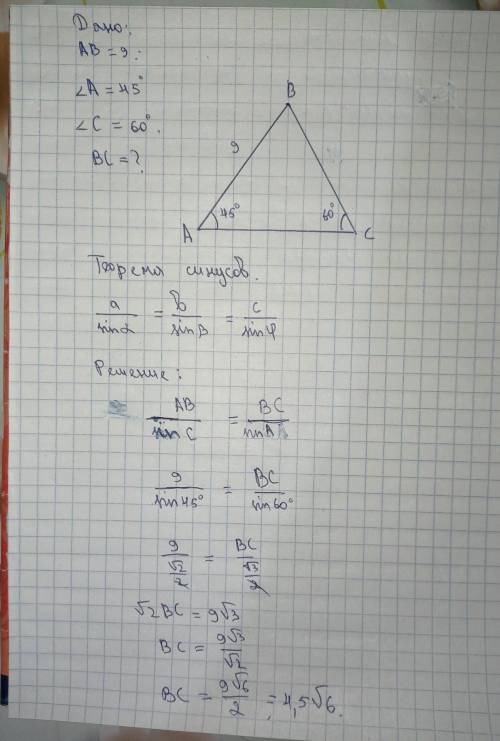 Дано:
AB = 9;
∠A = 45°
∠C = 60°.
BC = ?
B
9
45°
60°
A
C
Теорема синусов.
a/sinα = b/sinβ = c/sinφ
Решение:
AB/sin C = BC/sin A
9/sin45° = BC/sin60°
9/(√2/2) = BC/(√3/2)
√2 BC = 9√3
BC = 9√3/√2
BC = 9√6/2 = 4,5√6.